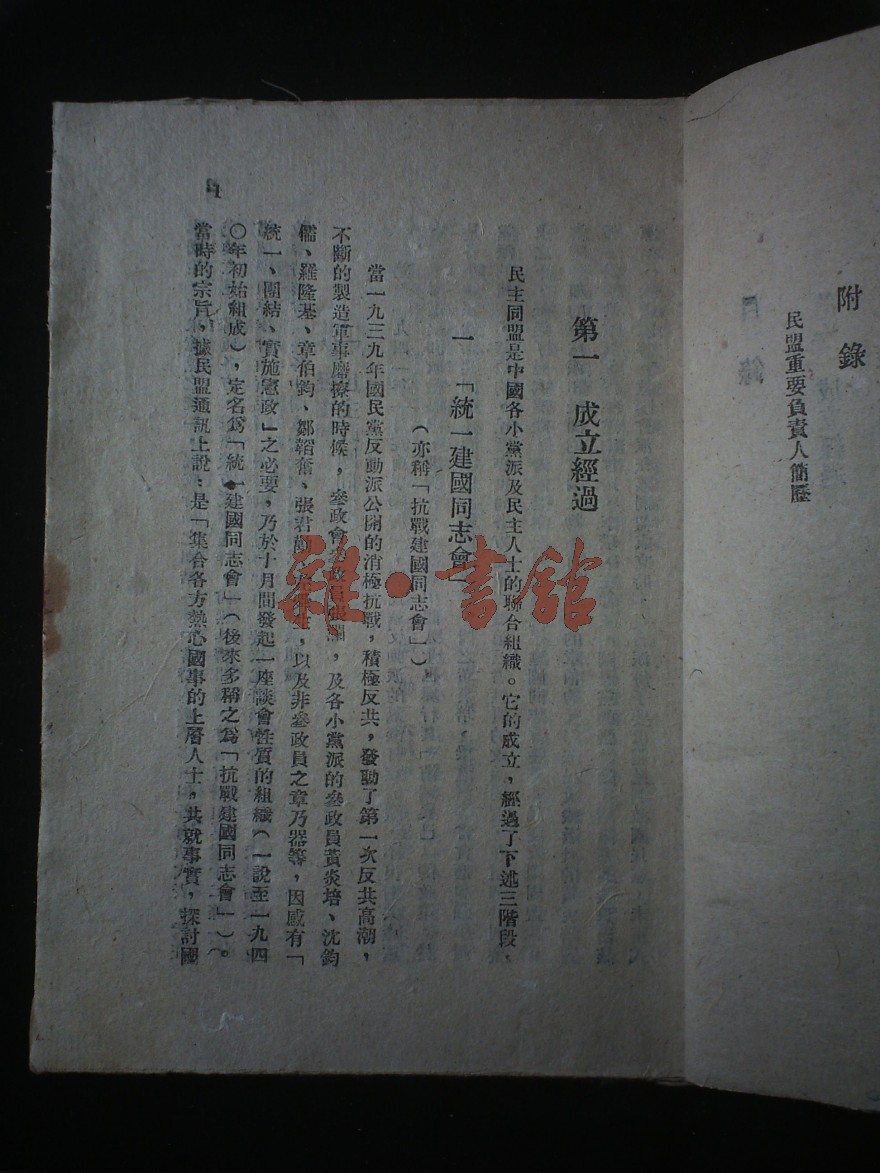 附錄
民盟重要負責人簡歷
第一 成立經過
民主同盟是中國各小黨派及民主人士的聯合組織。它的成立，經過了下述三階段，
一 「統一建國同志會」
（亦稱「抗戰建國同志會」）
當一九三九年國民黨反動派公開的消極抗戰，積極反共，發動了第一次反共高潮，
不斷的製造軍事磨擦的時候，參政會參政員張瀾，及各小黨派的參政員黃炎培、沈鈞
儒、羅隆基、章伯鈞、鄒韜奮、張君勱、生，以及非參政員之章乃器等，因感有「
統一、團結、實施憲政」之必要，乃於十月間發起一座談會性質的組織（一說至一九四
〇年初始組成），定名爲「統一建國同志會」（後來多稱之爲「抗戰建國同志會」）。
當時的宗旨，據民盟通訊上說：是「集合各方熱心國事的上層人士，共就事實，探討國
1
雜·書館